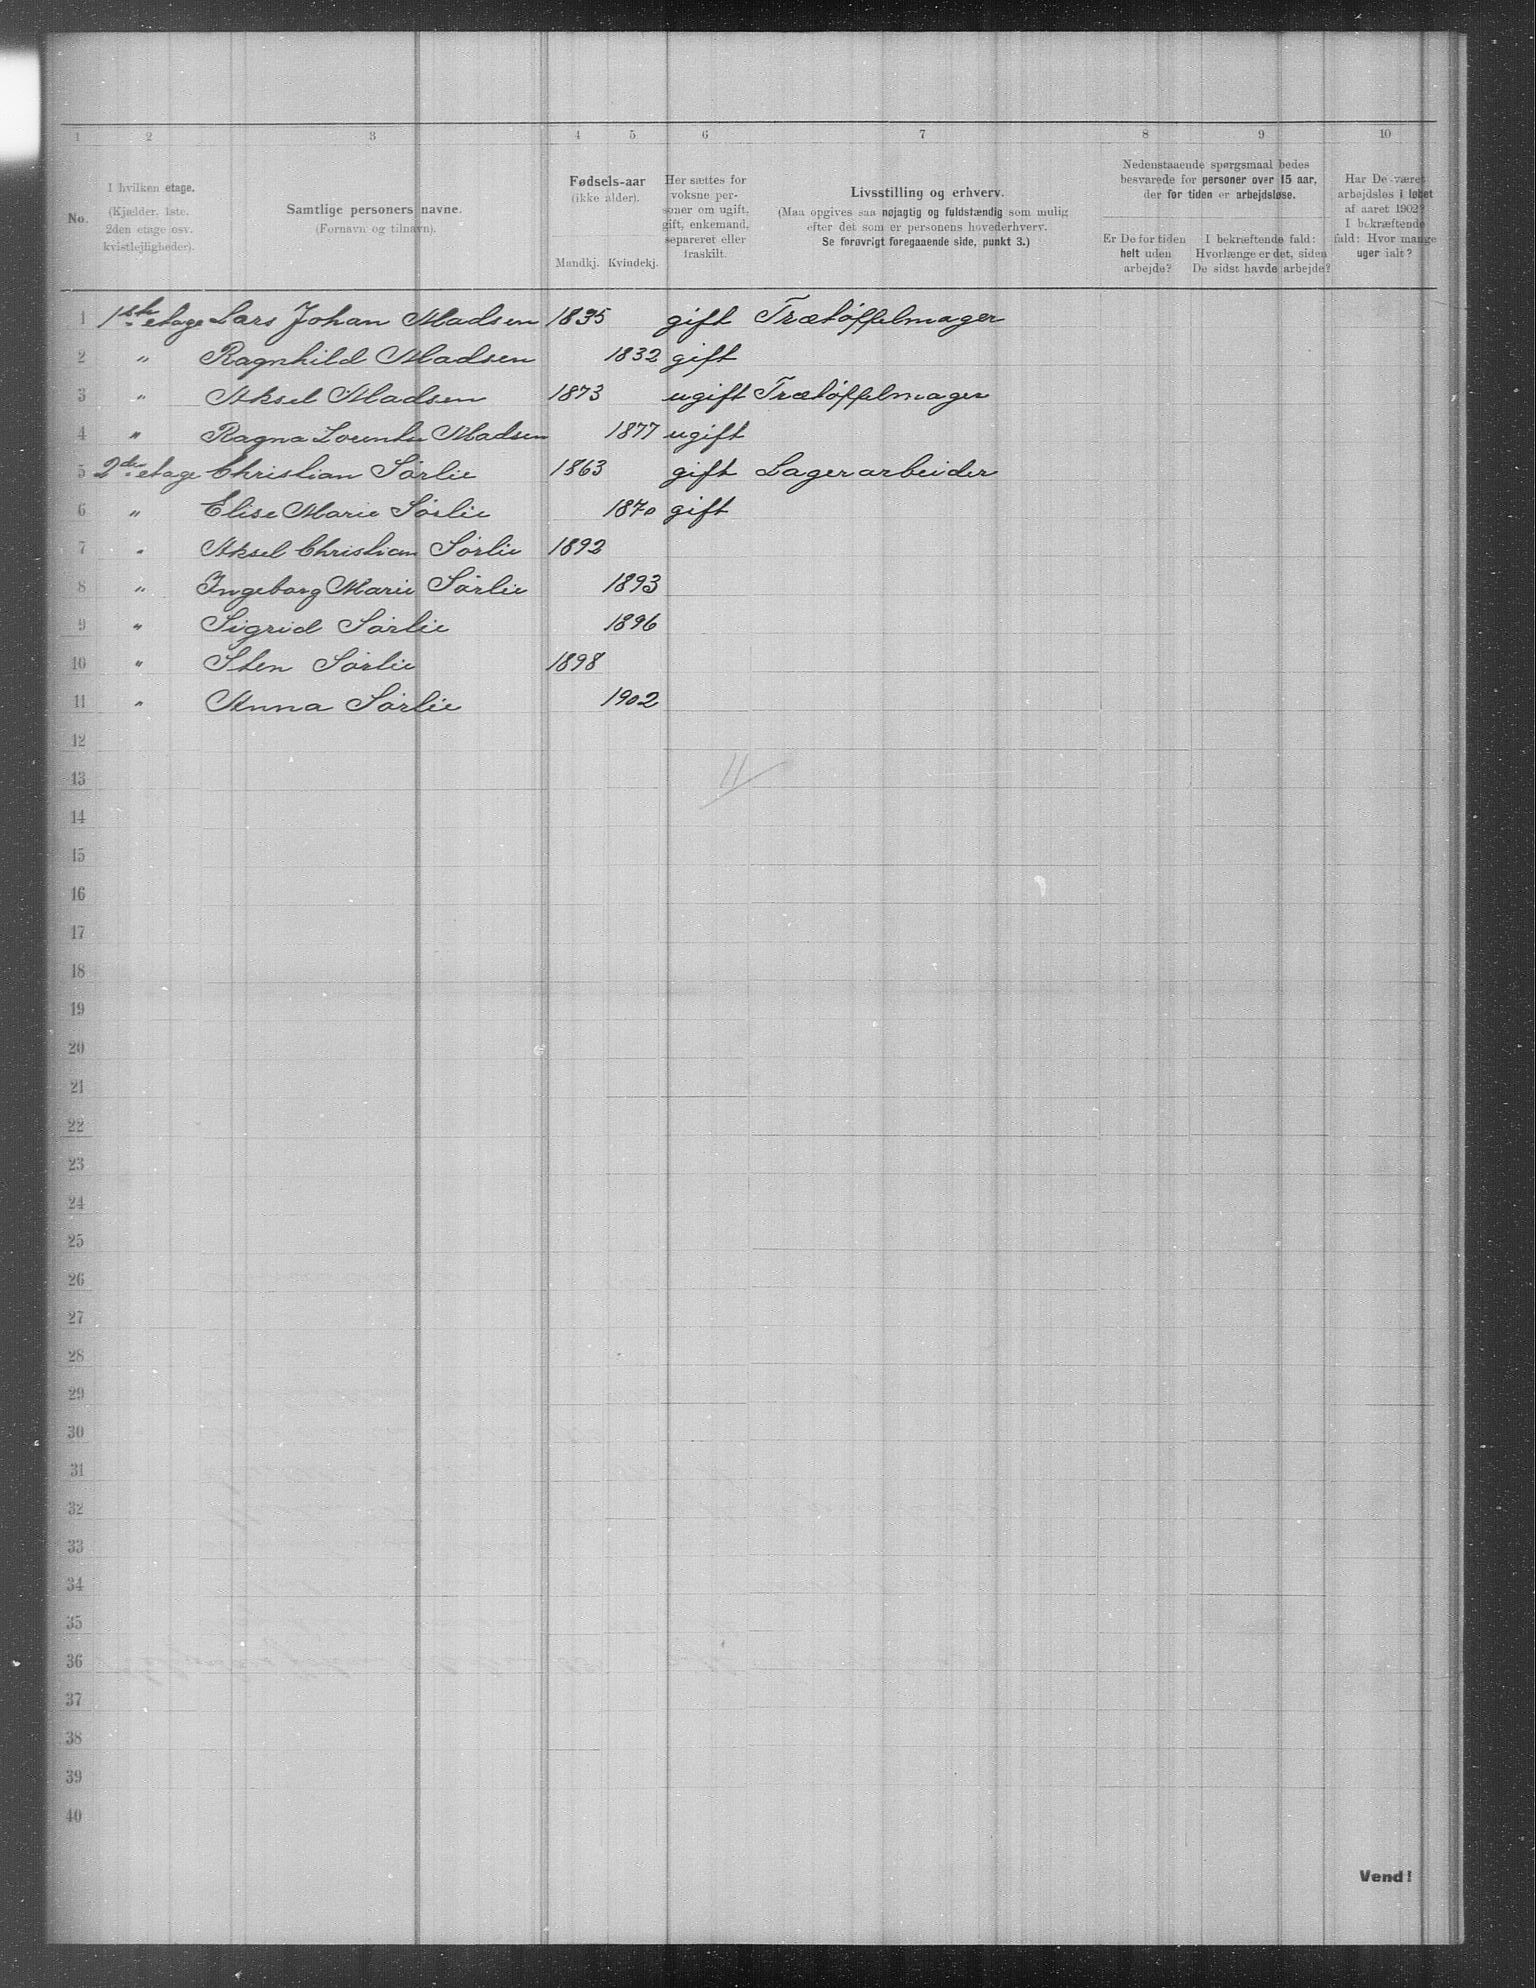 1 2 3 4 5 6 7 8 9 10
No.
I hvilken etage.
(Kjælder, 1ste.
2den etage osv.
kvistlejligheder).
Samtlige personers navne.
(Fornavn og tilnavn).
Fødsels-aar
(ikke alder).
Mandkj. Kvindekj.
Her sættes for
voksne per-
soner om ugift,
gift, enkemand,
separeret eller
fraskilt.
Livsstilling og erhverv.
(Maa opgives saa nøjagtig og fuldstændig som mulig
efter det som er personens hovederhverv.
Se forøvrigt foregaaende side, punkt 3.)
Nedenstaaende spørgsmaal bedes
besvarede for personer over 15 aar,
der for tiden er arbejdsløse.
Er De for tiden
helt uden
arbejde?
I bekræftende fald:
Hvorlænge er det, siden
De sidst havde arbejde?
Har De været
arbejdsløs i løbet
af aaret 1902?
I bekræftende
fald: Hvor mange
uger ialt?
1 1ste etage Lars Johan Madsen 1835 gift Trætøffelmager
2 " Ragnhild Madsen 1832 gift
3 " Aksel Madsen 1873 ugift Trætøffelmager
4 " Ragna Madsen 1877 ugift
5 2den etage Christian Sørlie 1863 gift Lagerarbeider
6 " Elise Marie Sørlie 1870 gift
7 " Aksel Christian Sørlie 1892
8 " Ingeborg Marie Sørlie 1893
9 " Sigrid Sørlie 1896
10 " Sten Sørlie 1898
11 " Anna Sørlie 1902
12
13 11
14
15
16
17
18
19
20
21
22
23
24
25
26
27
28
29
30
31
32
33
34
35
36
37
38
39
40
Vend!